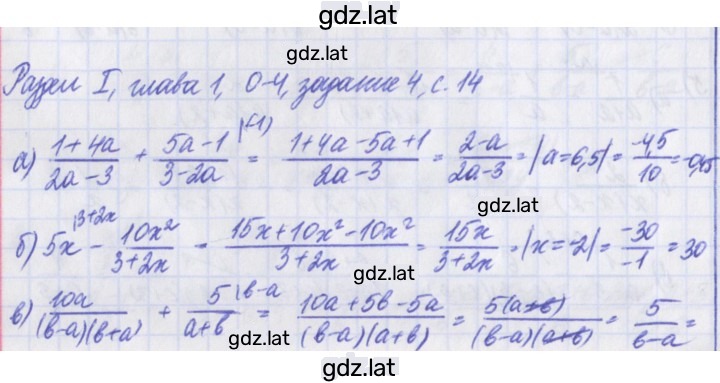 gdz.lat
gdz.lat
Раздел I, глава 1, О-4, задание 4, с. 14
а) (1+4a)/(2a-3) + (5a-1)/(3-2a) |(-1) = (1+4a-5a+1)/(2a-3) = (2-a)/(2a-3) = |a=6,5| = -4,5/10 = -0,45
б) 5x |3+2x - 10x²/(3+2x) = (15x+10x²-10x²)/(3+2x) = 15x/(3+2x) = |x=-2| = -30/-1 = 30
gdz.lat
в) 10a/((b-a)(b+a)) + 5/(a+b) |b-a = (10a+5b-5a)/((b-a)(a+b)) = 5(a+b)/((b-a)(a+b)) = 5/(b-a) =
gdz.lat
gdz.lat